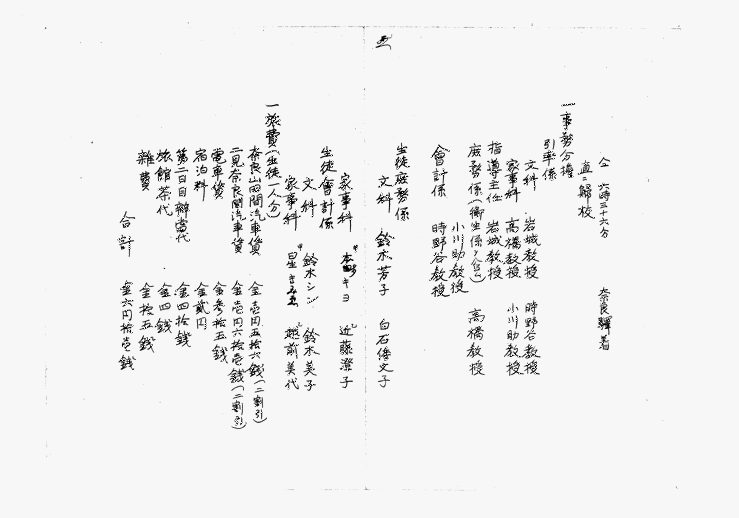 五
仝 六時三十六分 奈良驛着
直ニ歸校
一 事務分擔
引率係
文科 岩城教授 時野谷教授
家事科 高橋教授 小川助教授
指導主任 岩城教授
庶務係(衛生係ヲ含ム) 高橋教授
小川助教授
會計係 時野谷教授
生徒庶務係
文科 鈴木芳子 白石倭文子
家事科 本野キヨ 近藤澄子
生徒會計係
文科 鈴木シン 鈴木美子
家事科 星きみゑ 越前美代
一 旅費(生徒一人分)
奈良山田間汽車賃 金壱円五拾六銭(二割引)
二見奈良間汽車賃 金壱円六拾壱銭(二割引)
電車賃 金参拾五銭
宿泊料 金貳円
第二日目辨當代 金四拾銭
旅館茶代 金四銭
雑費 金拾五銭
合計 金六円拾壱銭